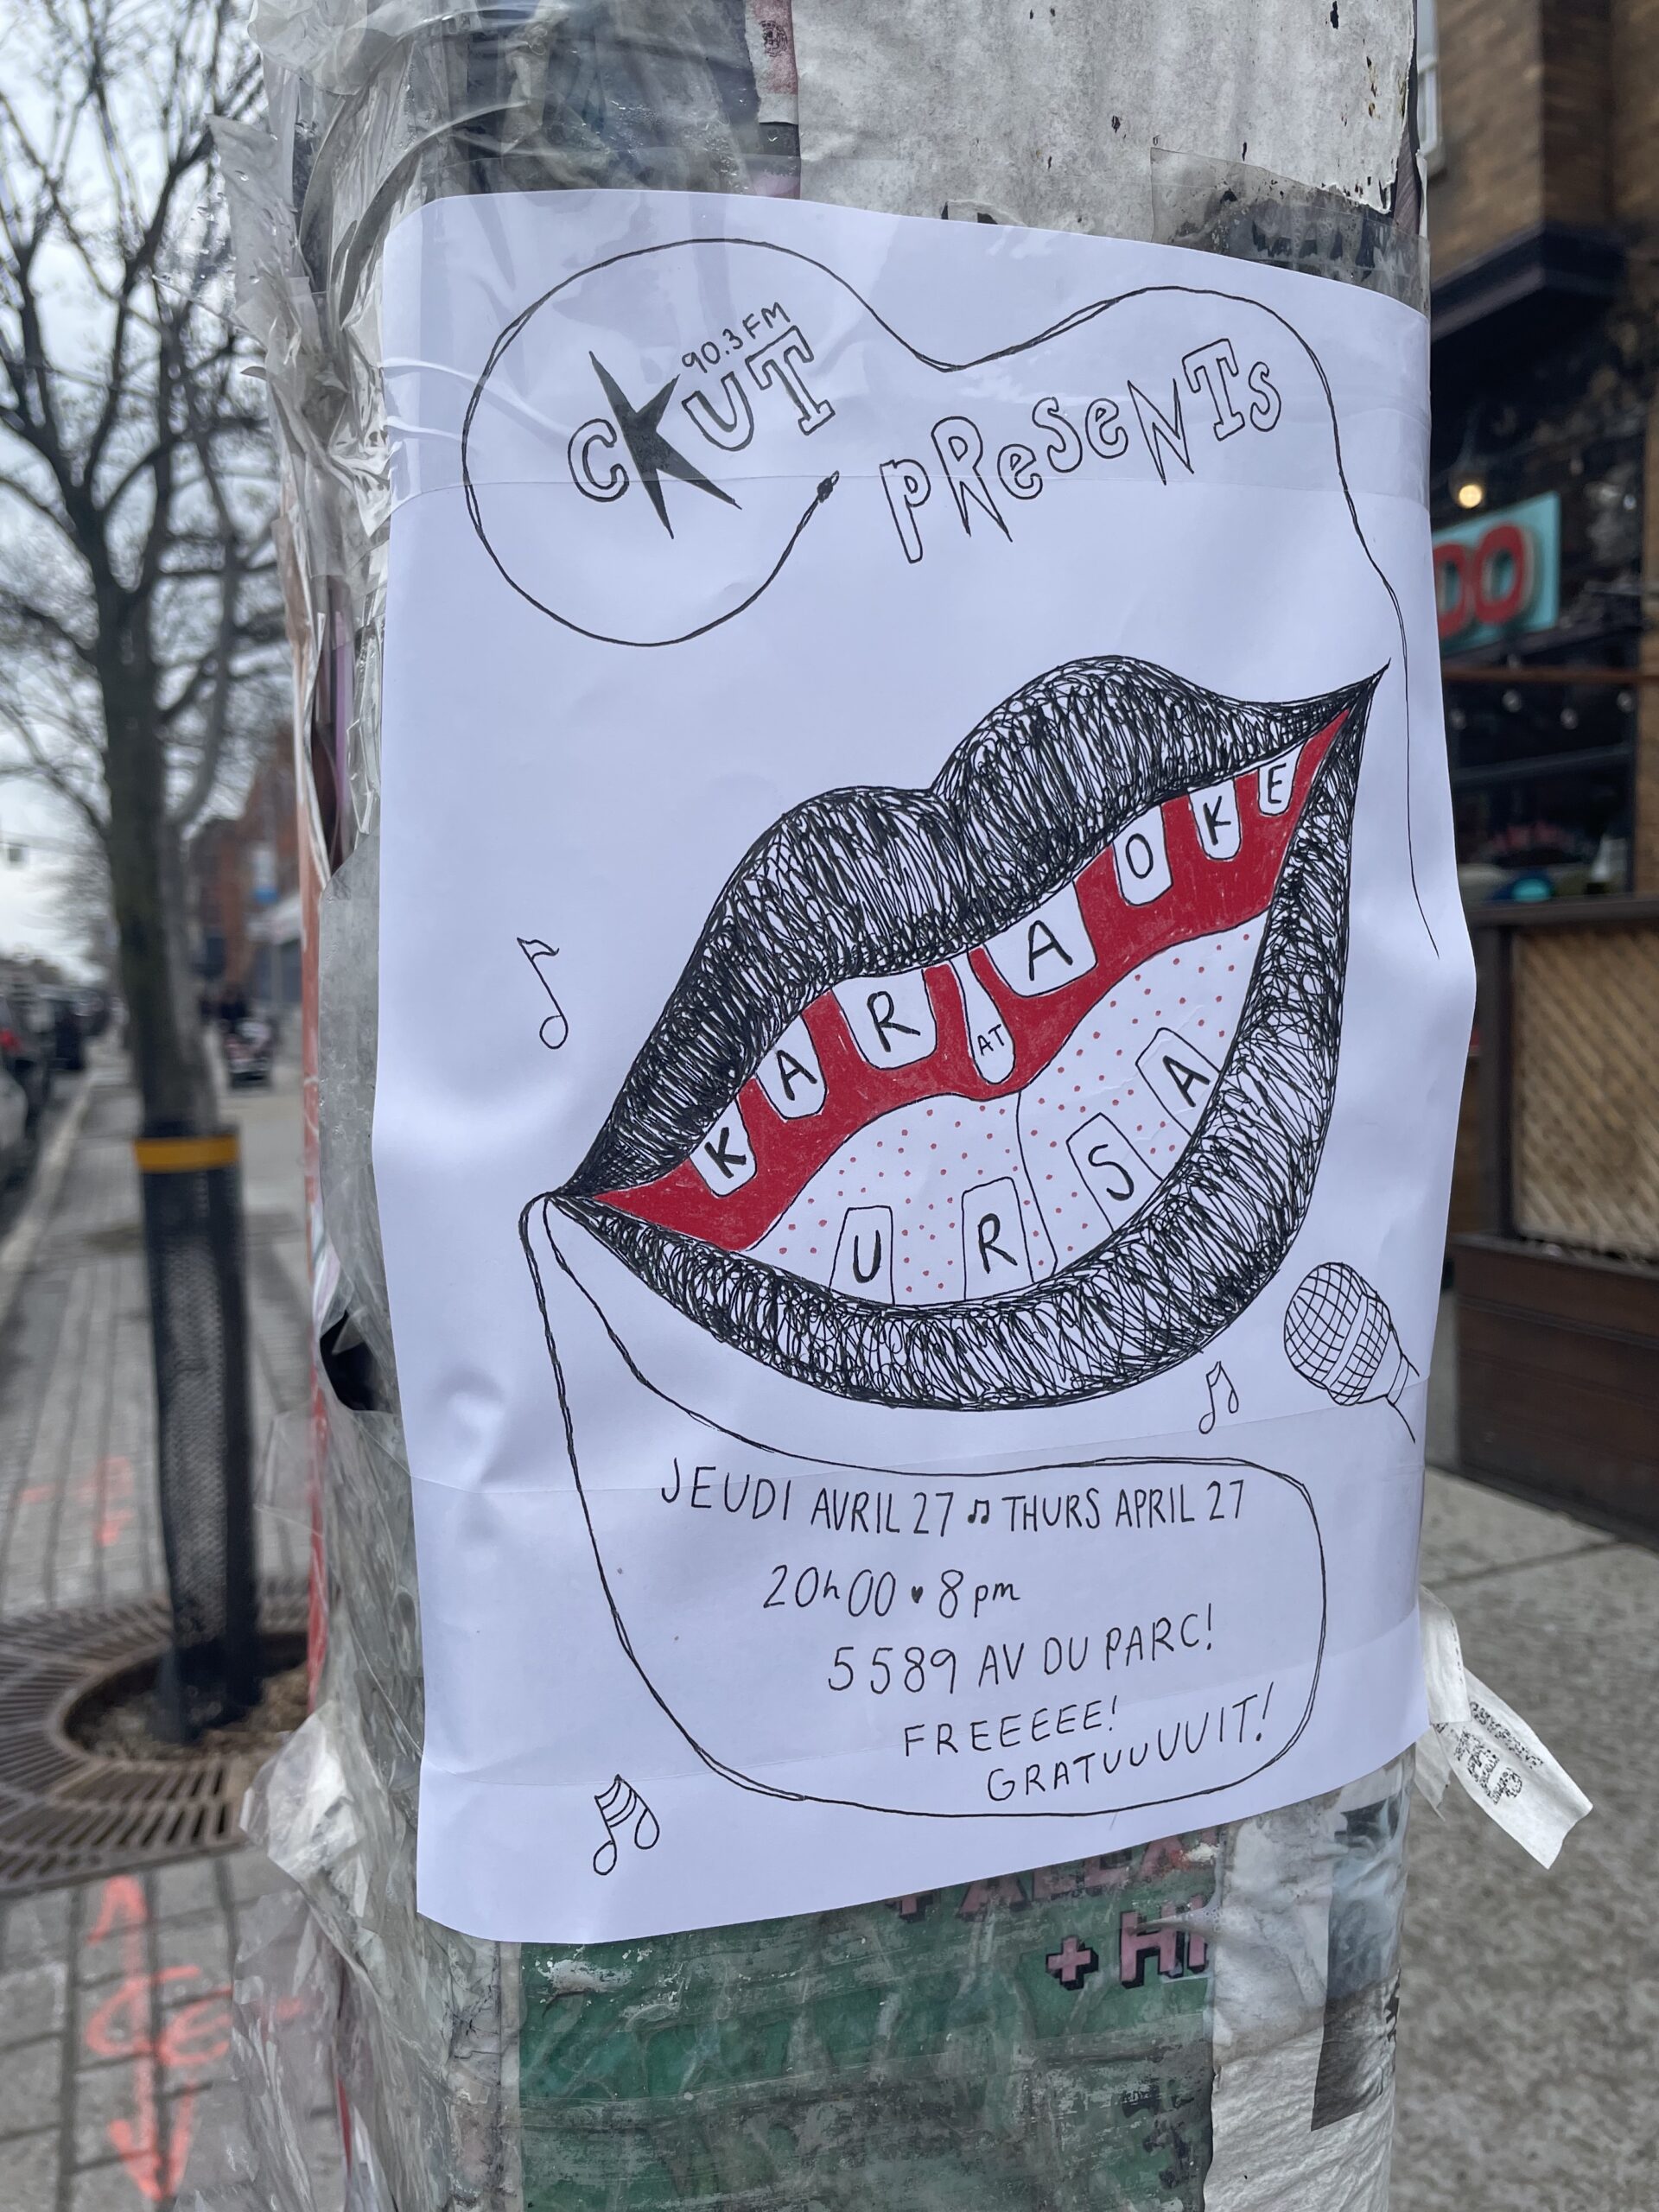 90.3 FM
CKUT PReSeNTs
KARAOKE
AT
URSA
JEUDI AVRIL 27 ♫ THURS APRIL 27
20h00 ♥ 8pm
5589 AV DU PARC!
FREEEEE!
GRATUUUUIT!
+ HI